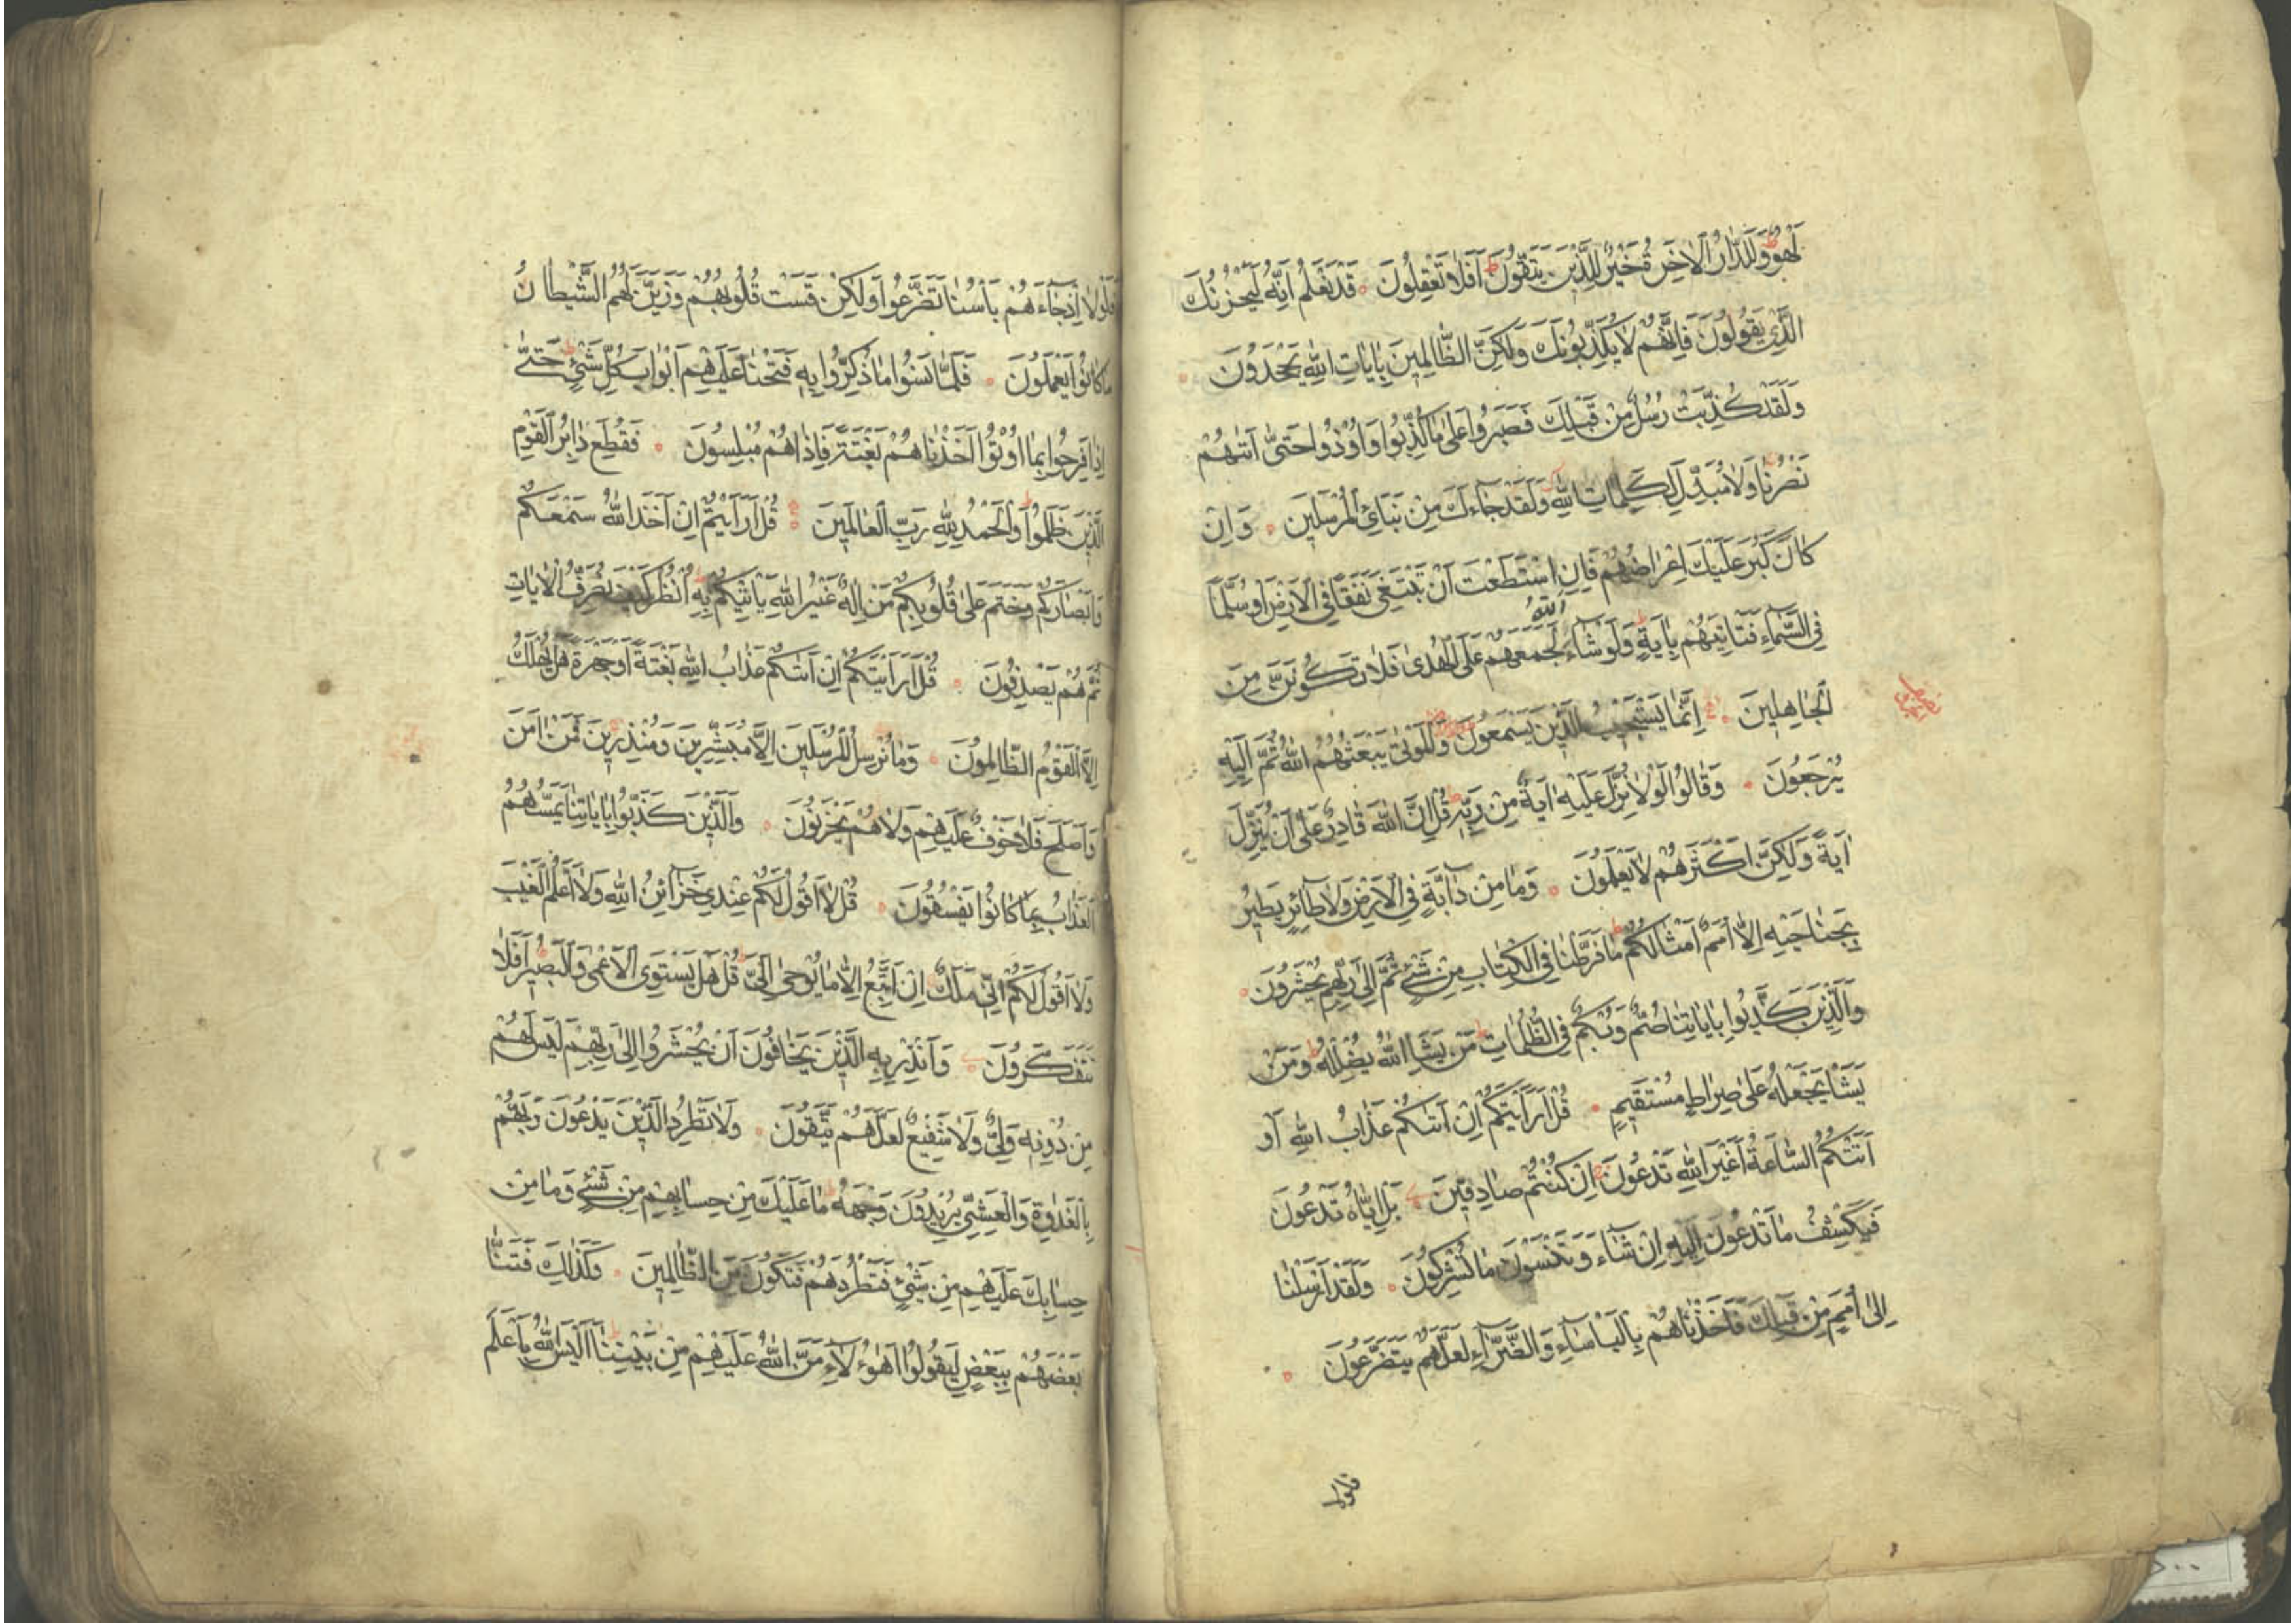 لَهْوٌ وَلَلدَّارُ الْاٰخِرَةُ خَيْرٌ لِلَّذِيْنَ يَتَّقُوْنَ اَفَلَا تَعْقِلُوْنَ قَدْ نَعْلَمُ اِنَّهُ لَيَحْزُنُكَ
الَّذِيْ يَقُوْلُوْنَ فَاِنَّهُمْ لَا يُكَذِّبُوْنَكَ وَلٰكِنَّ الظَّالِمِيْنَ بِاٰيَاتِ اللّٰهِ يَجْحَدُوْنَ
وَلَقَدْ كُذِّبَتْ رُسُلٌ مِنْ قَبْلِكَ فَصَبَرُوْا عَلٰى مَا كُذِّبُوْا وَاُوْذُوْا حَتّٰى اَتٰيهُمْ
نَصْرُنَا وَلَا مُبَدِّلَ لِكَلِمَاتِ اللّٰهِ وَلَقَدْ جَاءَكَ مِنْ نَبَائِ الْمُرْسَلِيْنَ وَاِنْ
كَانَ كَبُرَ عَلَيْكَ اِعْرَاضُهُمْ فَاِنِ اسْتَطَعْتَ اَنْ تَبْتَغِيَ نَفَقًا فِي الْاَرْضِ اَوْ سُلَّمًا
فِي السَّمَاءِ فَتَاْتِيَهُمْ بِاٰيَةٍ وَلَوْ شَاءَ اللّٰهُ لَجَمَعَهُمْ عَلَى الْهُدٰى فَلَا تَكُوْنَنَّ مِنَ
الْجَاهِلِيْنَ اِنَّمَا يَسْتَجِيْبُ الَّذِيْنَ يَسْمَعُوْنَ وَالْمَوْتٰى يَبْعَثُهُمُ اللّٰهُ ثُمَّ اِلَيْهِ
يُرْجَعُوْنَ وَقَالُوْا لَوْلَا نُزِّلَ عَلَيْهِ اٰيَةٌ مِنْ رَبِّهِ قُلْ اِنَّ اللّٰهَ قَادِرٌ عَلٰى اَنْ يُنَزِّلَ
اٰيَةً وَلٰكِنَّ اَكْثَرَهُمْ لَا يَعْلَمُوْنَ وَمَا مِنْ دَابَّةٍ فِي الْاَرْضِ وَلَا طَائِرٍ يَطِيْرُ
بِجَنَاحَيْهِ اِلَّا اُمَمٌ اَمْثَالُكُمْ مَا فَرَّطْنَا فِي الْكِتَابِ مِنْ شَيْءٍ ثُمَّ اِلٰى رَبِّهِمْ يُحْشَرُوْنَ
وَالَّذِيْنَ كَذَّبُوْا بِاٰيَاتِنَا صُمٌّ وَبُكْمٌ فِي الظُّلُمَاتِ مَنْ يَشَاِ اللّٰهُ يُضْلِلْهُ وَمَنْ
يَشَاْ يَجْعَلْهُ عَلٰى صِرَاطٍ مُسْتَقِيْمٍ قُلْ اَرَاَيْتَكُمْ اِنْ اَتٰيكُمْ عَذَابُ اللّٰهِ اَوْ
اَتَتْكُمُ السَّاعَةُ اَغَيْرَ اللّٰهِ تَدْعُوْنَ اِنْ كُنْتُمْ صَادِقِيْنَ بَلْ اِيَّاهُ تَدْعُوْنَ
فَيَكْشِفُ مَا تَدْعُوْنَ اِلَيْهِ اِنْ شَاءَ وَتَنْسَوْنَ مَا تُشْرِكُوْنَ وَلَقَدْ اَرْسَلْنَا
اِلٰى اُمَمٍ مِنْ قَبْلِكَ فَاَخَذْنَاهُمْ بِالْبَاْسَاءِ وَالضَّرَّاءِ لَعَلَّهُمْ يَتَضَرَّعُوْنَ
فلولا
فَلَوْلَا اِذْ جَاءَهُمْ بَاْسُنَا تَضَرَّعُوْا وَلٰكِنْ قَسَتْ قُلُوْبُهُمْ وَزَيَّنَ لَهُمُ الشَّيْطَانُ
مَا كَانُوْا يَعْمَلُوْنَ فَلَمَّا نَسُوْا مَا ذُكِّرُوْا بِهِ فَتَحْنَا عَلَيْهِمْ اَبْوَابَ كُلِّ شَيْءٍ حَتّٰى
اِذَا فَرِحُوْا بِمَا اُوْتُوْا اَخَذْنَاهُمْ بَغْتَةً فَاِذَا هُمْ مُبْلِسُوْنَ فَقُطِعَ دَابِرُ الْقَوْمِ
الَّذِيْنَ ظَلَمُوْا وَالْحَمْدُ لِلّٰهِ رَبِّ الْعَالَمِيْنَ قُلْ اَرَاَيْتُمْ اِنْ اَخَذَ اللّٰهُ سَمْعَكُمْ
وَاَبْصَارَكُمْ وَخَتَمَ عَلٰى قُلُوْبِكُمْ مَنْ اِلٰهٌ غَيْرُ اللّٰهِ يَاْتِيْكُمْ بِهِ اُنْظُرْ كَيْفَ نُصَرِّفُ الْاٰيَاتِ
ثُمَّ هُمْ يَصْدِفُوْنَ قُلْ اَرَاَيْتَكُمْ اِنْ اَتٰيكُمْ عَذَابُ اللّٰهِ بَغْتَةً اَوْ جَهْرَةً هَلْ يُهْلَكُ
اِلَّا الْقَوْمُ الظَّالِمُوْنَ وَمَا نُرْسِلُ الْمُرْسَلِيْنَ اِلَّا مُبَشِّرِيْنَ وَمُنْذِرِيْنَ فَمَنْ اٰمَنَ
وَاَصْلَحَ فَلَا خَوْفٌ عَلَيْهِمْ وَلَا هُمْ يَحْزَنُوْنَ وَالَّذِيْنَ كَذَّبُوْا بِاٰيَاتِنَا يَمَسُّهُمُ
الْعَذَابُ بِمَا كَانُوْا يَفْسُقُوْنَ قُلْ لَا اَقُوْلُ لَكُمْ عِنْدِيْ خَزَائِنُ اللّٰهِ وَلَا اَعْلَمُ الْغَيْبَ
وَلَا اَقُوْلُ لَكُمْ اِنِّيْ مَلَكٌ اِنْ اَتَّبِعُ اِلَّا مَا يُوْحٰى اِلَيَّ قُلْ هَلْ يَسْتَوِي الْاَعْمٰى وَالْبَصِيْرُ اَفَلَا
تَتَفَكَّرُوْنَ وَاَنْذِرْ بِهِ الَّذِيْنَ يَخَافُوْنَ اَنْ يُحْشَرُوْا اِلٰى رَبِّهِمْ لَيْسَ لَهُمْ
مِنْ دُوْنِهِ وَلِيٌّ وَلَا شَفِيْعٌ لَعَلَّهُمْ يَتَّقُوْنَ وَلَا تَطْرُدِ الَّذِيْنَ يَدْعُوْنَ رَبَّهُمْ
بِالْغَدٰوةِ وَالْعَشِيِّ يُرِيْدُوْنَ وَجْهَهُ مَا عَلَيْكَ مِنْ حِسَابِهِمْ مِنْ شَيْءٍ وَمَا مِنْ
حِسَابِكَ عَلَيْهِمْ مِنْ شَيْءٍ فَتَطْرُدَهُمْ فَتَكُوْنَ مِنَ الظَّالِمِيْنَ وَكَذٰلِكَ فَتَنَّا
بَعْضَهُمْ بِبَعْضٍ لِيَقُوْلُوْا اَهٰؤُلَاءِ مَنَّ اللّٰهُ عَلَيْهِمْ مِنْ بَيْنِنَا اَلَيْسَ اللّٰهُ بِاَعْلَمَ